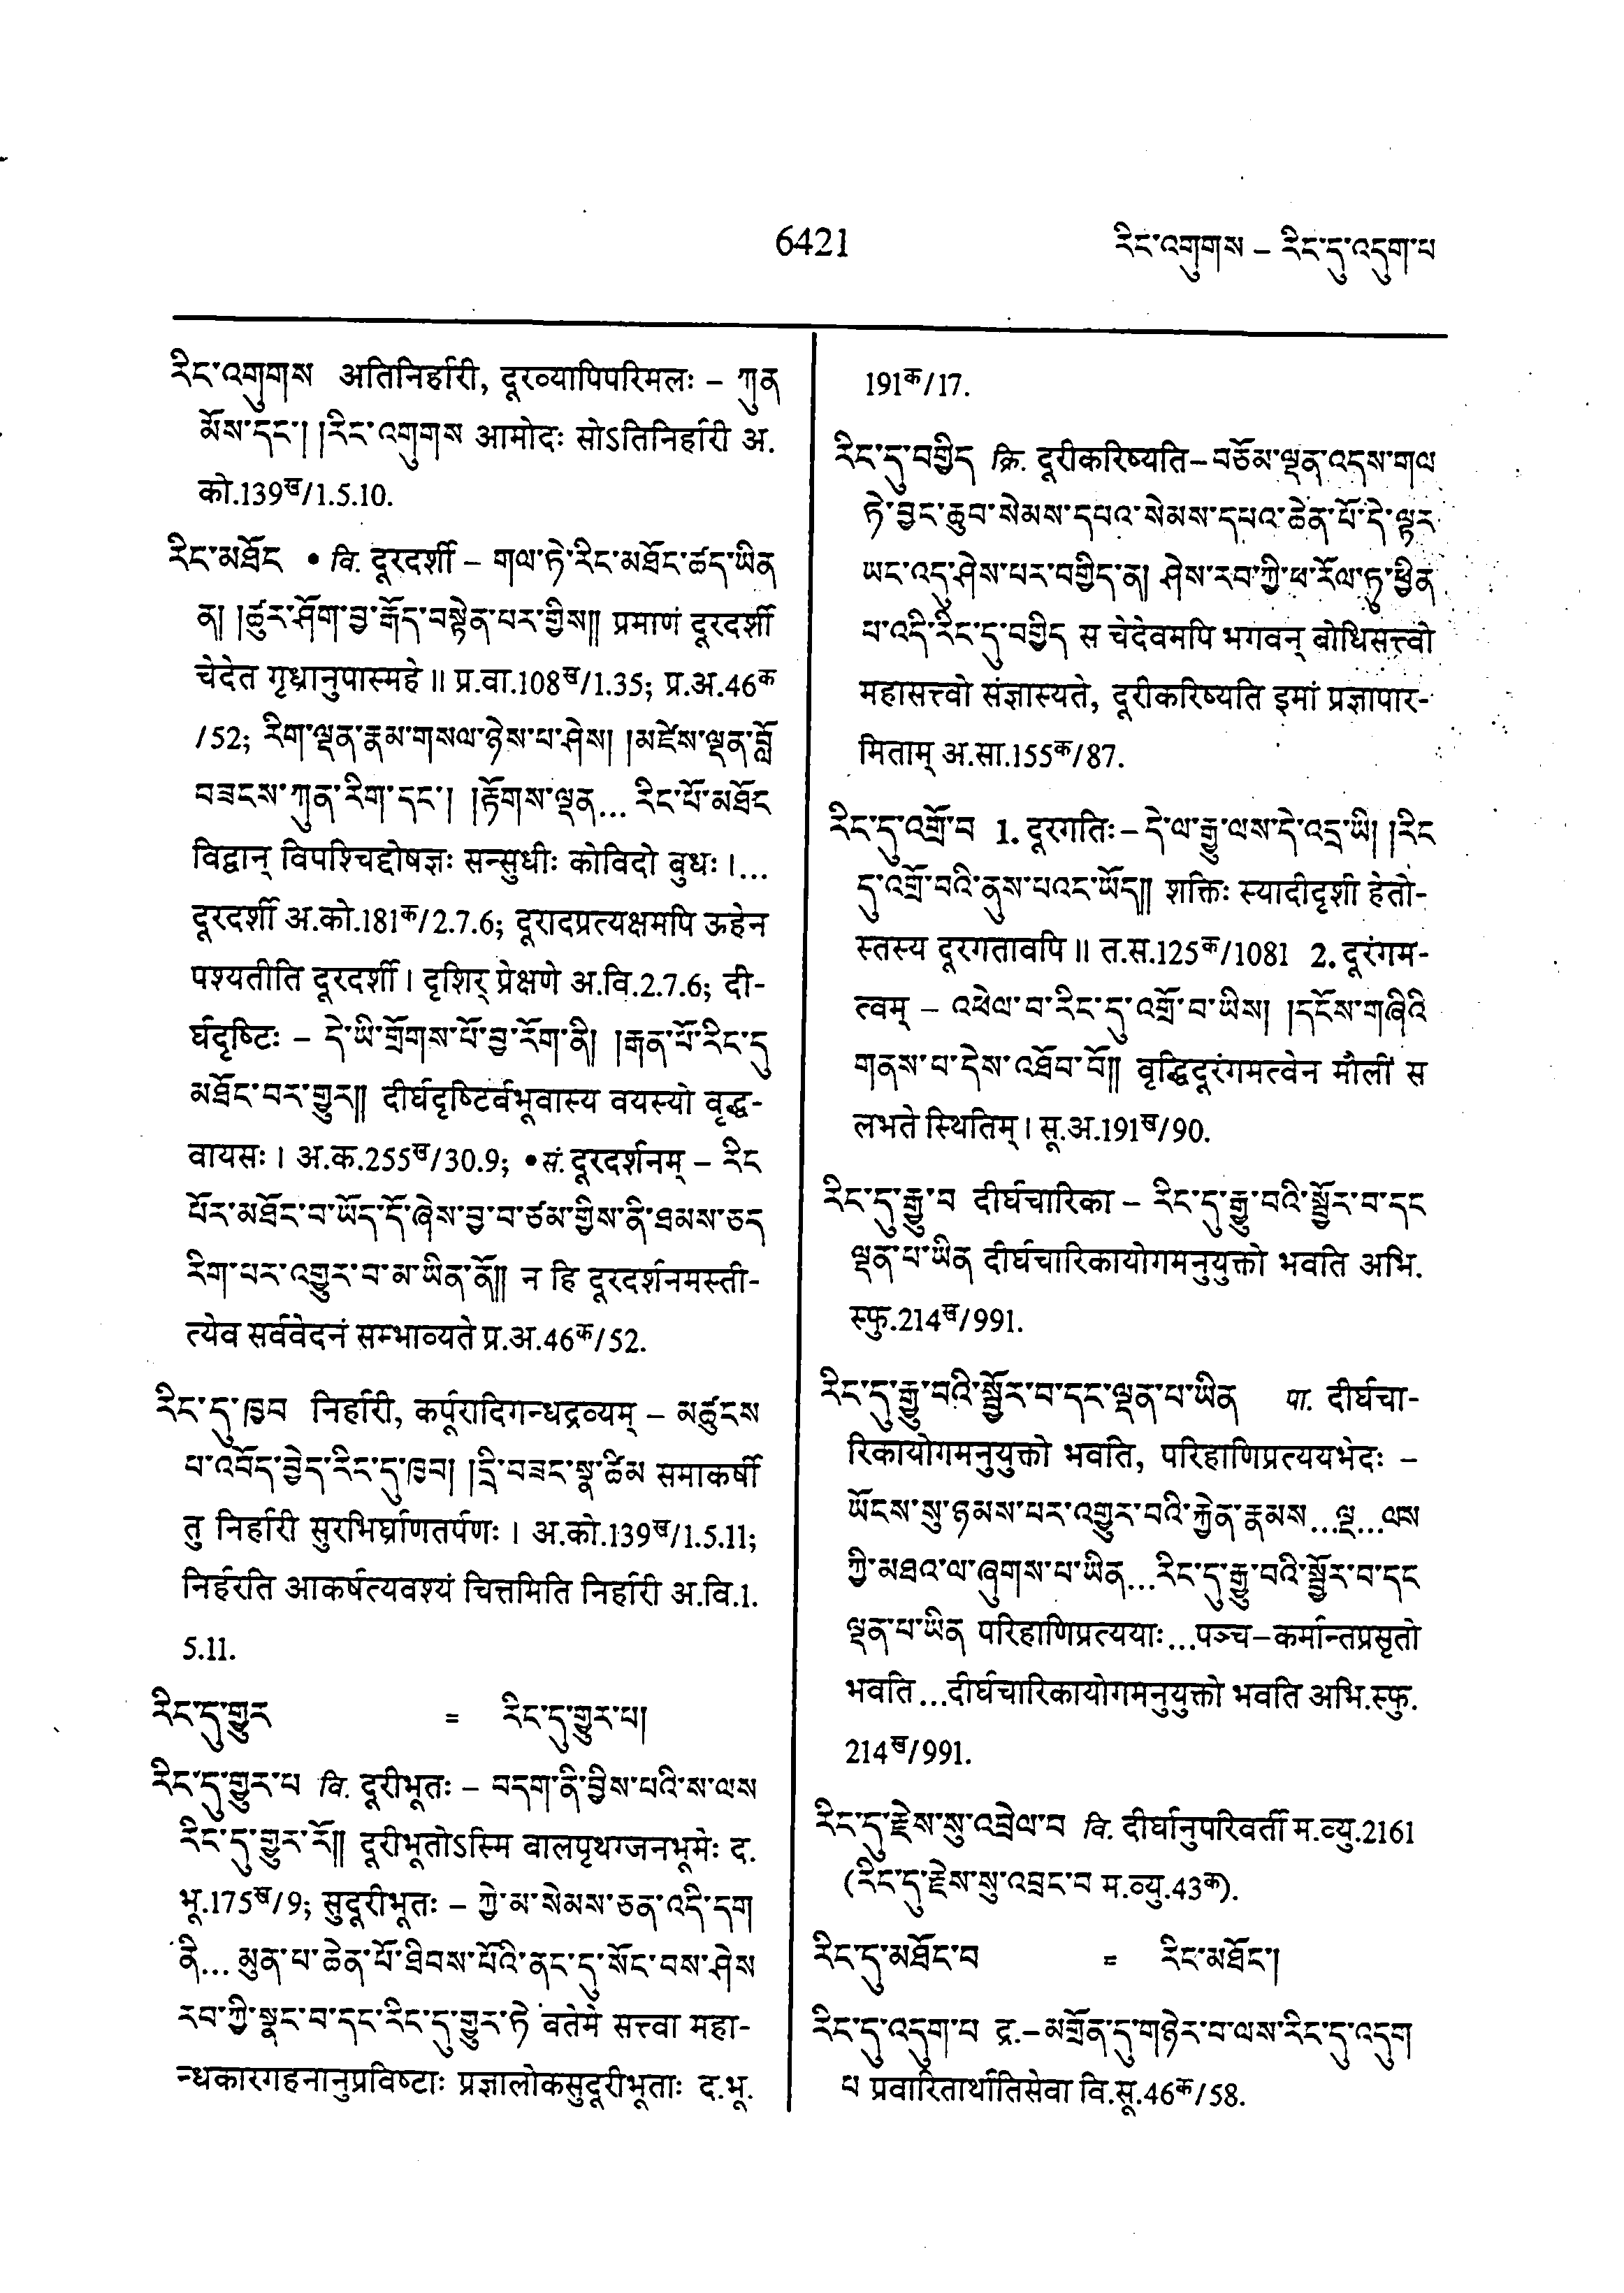 6421
རིང་འགུགས – རིང་དུ་འདུག་པ
རིང་འགུགས अतिनिर्हारी, दूरव्यापिपरिमलः – ཀུན
མོས་དང་། །རིང་འགུགས आमोदः सोऽतिनिर्हारी अ.
को.139ख/1.5.10.
རིང་མཐོང • वि. दूरदर्शी – གལ་ཏེ་རིང་མཐོང་ཚད་ཡིན
ན། །ཚུར་ཤོག་བྱ་རྒོད་བསྟེན་པར་གྱིས།། प्रमाणं दूरदर्शी
चेदेत गृध्रानुपास्महे ॥ प्र.वा.108ख/1.35; प्र.अ.46क
/52; རིག་ལྡན་རྣམ་གསལ་ཉེས་པ་ཤེས། །མཛེས་ལྡན་བློ
བཟངས་ཀུན་རིག་དང་། །རྟོགས་ལྡན... རིང་པོ་མཐོང
विद्वान् विपश्चिद्दोषज्ञः सन्सुधीः कोविदो बुधः ।...
दूरदर्शी अ.को.181क/2.7.6; दूरादप्रत्यक्षमपि ऊहेन
पश्यतीति दूरदर्शी । दृशिर् प्रेक्षणे अ.वि.2.7.6; दी-
र्घदृष्टिः – དེ་ཡི་གྲོགས་པོ་བྱ་རོག་ནི། །རྒན་པོ་རིང་དུ
མཐོང་བར་གྱུར།། दीर्घदृष्टिर्बभूवास्य वयस्यो वृद्ध-
वायसः । अ.क.255ख/30.9; • सं. दूरदर्शनम् – རིང
པོར་མཐོང་བ་ཡོད་དོ་ཞེས་བྱ་བ་ཙམ་གྱིས་ནི་ཐམས་ཅད
རིག་པར་འགྱུར་བ་མ་ཡིན་ནོ།། न हि दूरदर्शनमस्ती-
त्येव सर्ववेदनं सम्भाव्यते प्र.अ.46क/52.
རིང་དུ་ཁྱབ निर्हारी, कर्पूरादिगन्धद्रव्यम् – མཚུངས
པ་འབོད་བྱེད་རིང་དུ་ཁྱབ། །དྲི་བཟང་སྣ་ཚིམ समाकर्षी
तु निर्हारी सुरभिर्घ्राणतर्पणः । अ.को.139ख/1.5.11;
निर्हरति आकर्षत्यवश्यं चित्तमिति निर्हारी अ.वि.1.
5.11.
རིང་དུ་གྱུར = རིང་དུ་གྱུར་པ།
རིང་དུ་གྱུར་པ वि. दूरीभूतः – བདག་ནི་བྱིས་པའི་ས་ལས
རིང་དུ་གྱུར་རོ།། दूरीभूतोऽस्मि बालपृथग्जनभूमेः द.
भू.175ख/9; सुदूरीभूतः – ཀྱེ་མ་སེམས་ཅན་འདི་དག
ནི... མུན་པ་ཆེན་པོ་ཐིབས་པོའི་ནང་དུ་སོང་བས་ཤེས
རབ་ཀྱི་སྣང་བ་དང་རིང་དུ་གྱུར་ཏེ बतेमे सत्त्वा महा-
न्धकारगहनानुप्रविष्टाः प्रज्ञालोकसुदूरीभूताः द.भू.
191क/17.
རིང་དུ་བགྱིད क्रि. दूरीकरिष्यति – བཅོམ་ལྡན་འདས་གལ
ཏེ་བྱང་ཆུབ་སེམས་དཔའ་སེམས་དཔའ་ཆེན་པོ་དེ་ལྟར
ཡང་འདུ་ཤེས་པར་བགྱིད་ན། ཤེས་རབ་ཀྱི་ཕ་རོལ་ཏུ་ཕྱིན
པ་འདི་རིང་དུ་བགྱིད स चेदेवमपि भगवन् बोधिसत्त्वो
महासत्त्वो संज्ञास्यते, दूरीकरिष्यति इमां प्रज्ञापार-
मिताम् अ.सा.155क/87.
རིང་དུ་འགྲོ་བ 1. दूरगतिः – དེ་ལ་རྒྱུ་ལས་དེ་འདྲ་ཡི། །རིང
དུ་འགྲོ་བའི་ནུས་པའང་ཡོད།། शक्तिः स्यादीदृशी हेतो-
स्तस्य दूरगतावपि ॥ त.स.125क/1081 2. दूरंगम-
त्वम् – འཕེལ་བ་རིང་དུ་འགྲོ་བ་ཡིས། །དངོས་གཞིའི
གནས་པ་དེས་འཐོབ་བོ།། वृद्धिदूरंगमत्वेन मौलीं स
लभते स्थितिम् । सू.अ.191ख/90.
རིང་དུ་རྒྱུ་བ दीर्घचारिका – རིང་དུ་རྒྱུ་བའི་སྦྱོར་བ་དང
ལྡན་པ་ཡིན दीर्घचारिकायोगमनुयुक्तो भवति अभि.
स्फु.214ख/991.
རིང་དུ་རྒྱུ་བའི་སྦྱོར་བ་དང་ལྡན་པ་ཡིན पा. दीर्घचा-
रिकायोगमनुयुक्तो भवति, परिहाणिप्रत्ययभेदः –
ཡོངས་སུ་ཉམས་པར་འགྱུར་བའི་རྐྱེན་རྣམས...ལྔ...ལས
ཀྱི་མཐའ་ལ་ཞུགས་པ་ཡིན...རིང་དུ་རྒྱུ་བའི་སྦྱོར་བ་དང
ལྡན་པ་ཡིན परिहाणिप्रत्ययाः...पञ्च–कर्मान्तप्रसृतो
भवति...दीर्घचारिकायोगमनुयुक्तो भवति अभि.स्फु.
214ख/991.
རིང་དུ་རྗེས་སུ་འབྲེལ་བ वि. दीर्घानुपरिवर्ती म.व्यु.2161
(རིང་དུ་རྗེས་སུ་འབྲང་བ म.व्यु.43क).
རིང་དུ་མཐོང་བ = རིང་མཐོང་།
རིང་དུ་འདུག་པ द्र.– མགྲོན་དུ་གཉེར་བ་ལས་རིང་དུ་འདུག
པ प्रवारितार्थातिसेवा वि.सू.46क/58.